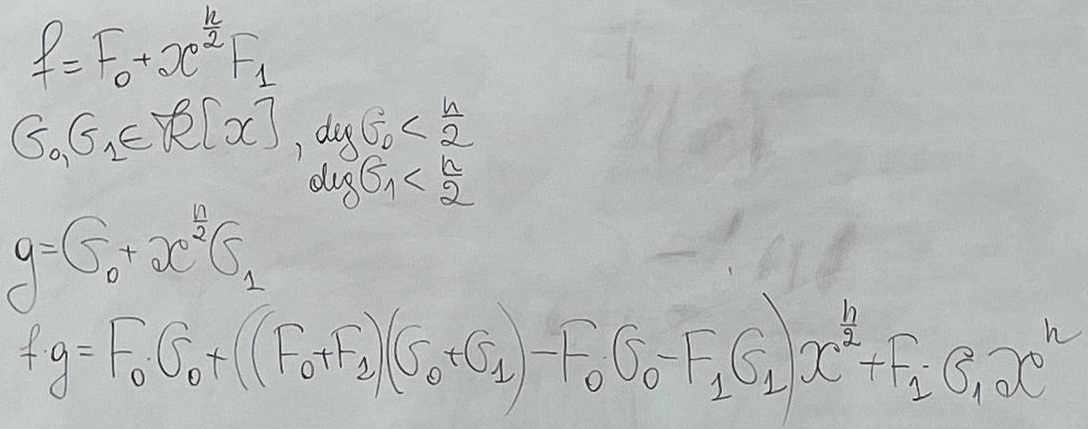 f = F₀ + x^{n/2} F₁
G₀, G₁ ∈ R[x], deg G₀ < n/2
deg G₁ < n/2
g = G₀ + x^{n/2} G₁
f·g = F₀·G₀ + ((F₀+F₁)(G₀+G₁) − F₀·G₀ − F₁G₁) x^{n/2} + F₁·G₁ x^n